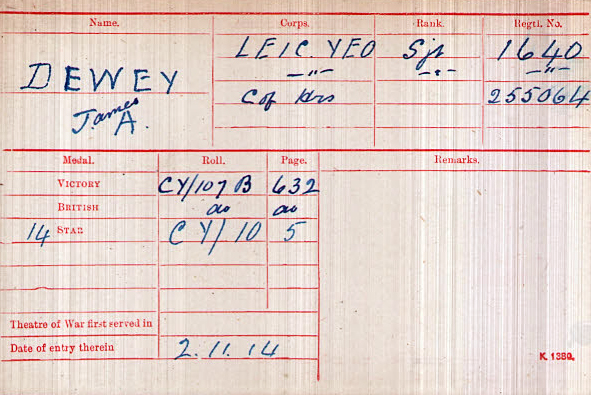 Name. Corps. Rank. Regtl. No.
DEWEY LEIC YEO Sjt 1640
James A. —"— —"— —"—
C of Hrs 255064
Medal. Roll. Page. Remarks.
VICTORY CY/107 B 632
BRITISH do do
14 STAR CY/10 5
Theatre of War first served in
Date of entry therein 2.11.14
K. 1380.